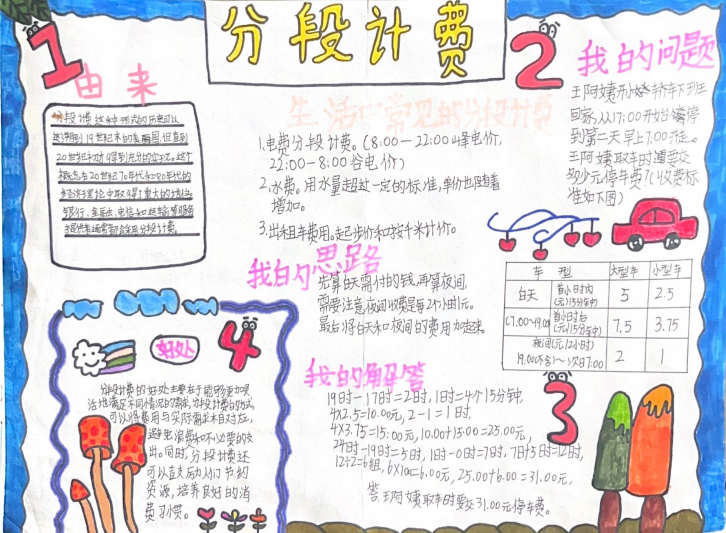 分段计费
1
由来
分段计费这种形式的历史可以
追溯到19世纪末的美国,但直到
20世纪初才得到充分的实现。这个
概念在20世纪70年代和80年代的
经济理论中取得了重大的
银行、金融、电信和运输等服务
分段计费。
生活中常见的分段计费
1.电费分段计费。(8:00—22:00峰电价,
22:00-8:00谷电价)
2.水费。用水量超过一定的标准,单价也随着
增加。
3.出租车费用。起步价和按千米计价。
2
我的问题
王阿姨开小轿车下班
回家,从17:00开始停
到第二天早上7:00开走。
王阿姨取车时需要交
多少元停车费?(收费标
准如下图)
车 型 大型车 小型车
白天 首小时内 5 2.5
(元/15分钟)
(7:00~19:00) 首小时后 7.5 3.75
(元/15分钟)
夜间(元/2小时) 2 1
19:00(不含)~次日7:00
我的思路
先算白天需付的钱,再算夜间,
需要注意夜间收费是每2个小时1元。
最后将白天和夜间的费用加起来。
我的解答
19时-17时=2时,1时=4个15分钟,
4×2.5=10.00元,2-1=1时,
4×3.75=15.00元,10.00+15.00=25.00元,
24时-19时=5时,1时-0时=7时,7时+5时=12时,
12÷2=6组,6×1=6.00元,25.00+6.00=31.00元,
答:王阿姨取车时要交31.00元停车费。
3
4
好处
分段计费的好处主要在于能够更加灵
活地满足不同情况的需求,分段计费的方式
可以将费用与实际需求相对应,
避免浪费和不必要的支
出。同时,分段计费还
可以鼓励人们节约
资源,培养良好的消
费习惯。